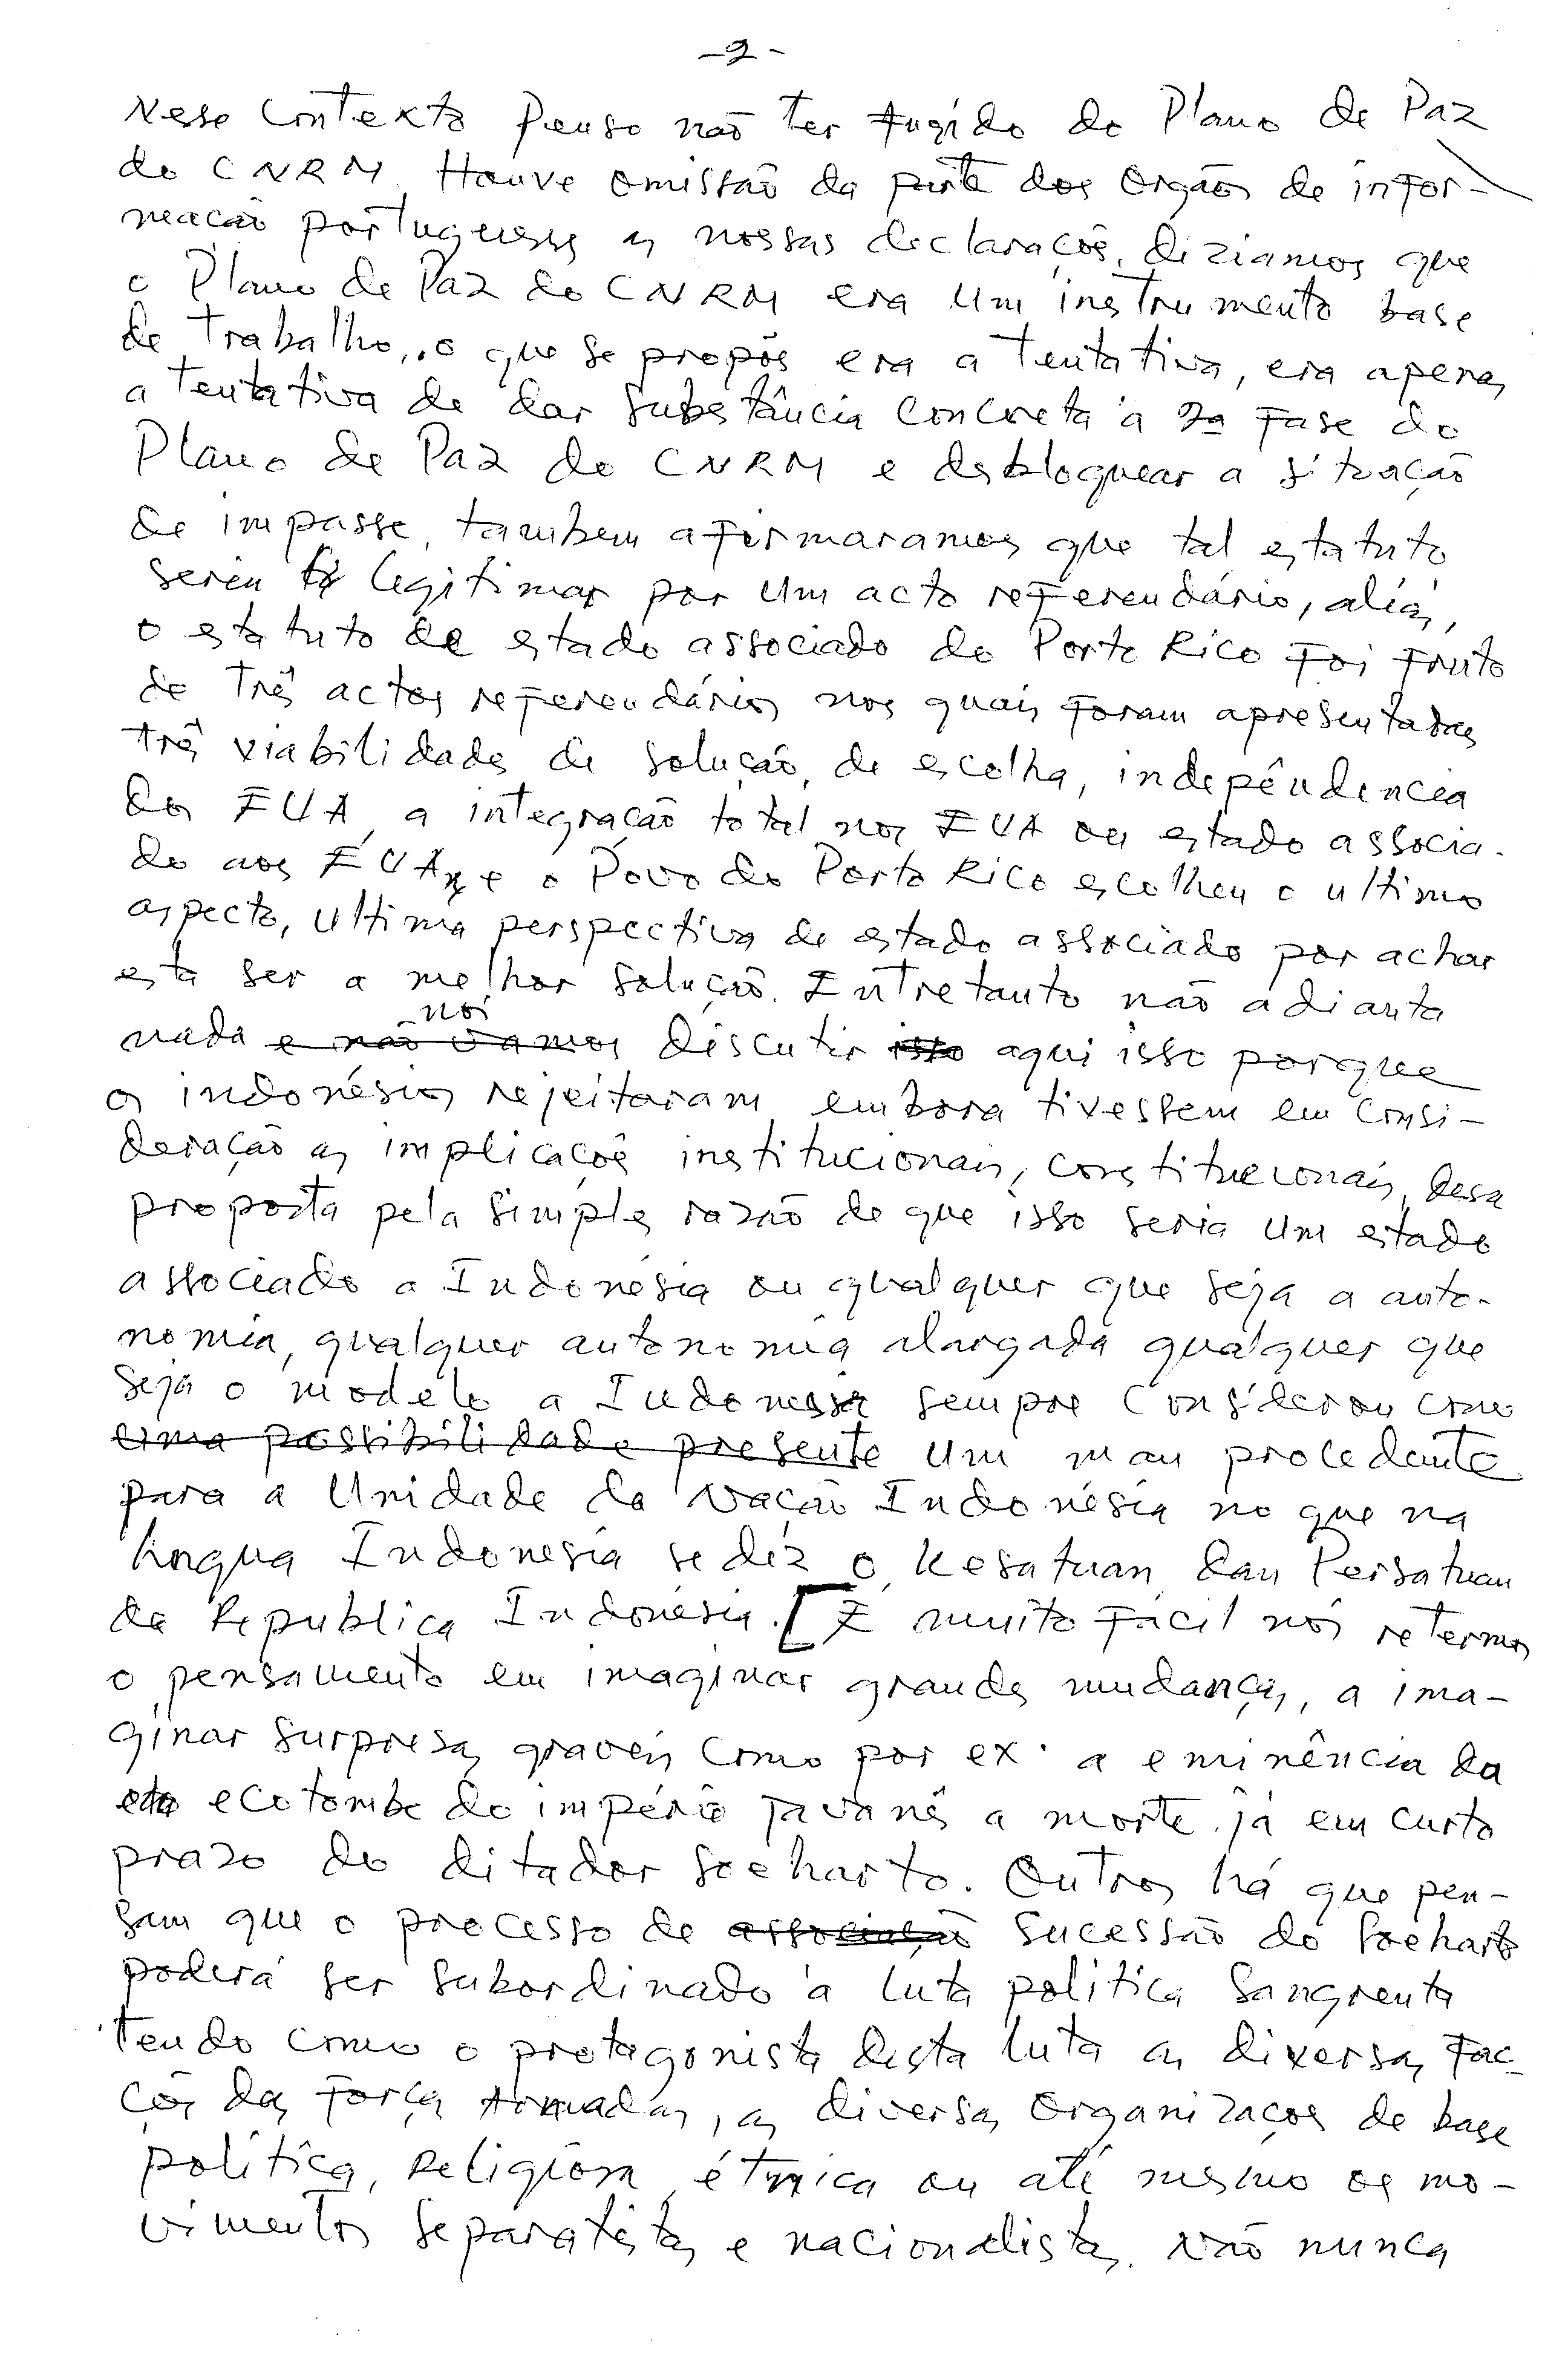 -2-
Nesse contexto penso não ter fugido do Plano de Paz
do CNRM. Houve omissão da parte dos Orgãos de infor-
mação portugueses as nossas declarações, diziamos que
o Plano de Paz do CNRM era um instrumento base
de trabalho, o que se propôs era a tentativa, era apenas
a tentativa de dar substância concreta à 2ª fase do
Plano de Paz do CNRM e desbloquear a situação
de impasse, tambem afirmaramos que tal estatuto
seria legitimar por um acto referendário, aliás,
o estatuto de estado associado do Porto Rico foi fruto
de três actos referendários nos quais foram apresentadas
três viabilidades de solução, de escolha, indepêndencia
dos EUA, a integração total nos EUA ou estado associa-
do aos EUA, e o Povo do Porto Rico escolheu o ultimo
aspecto, ultima perspectiva de estado associado por achar
esta ser a melhor solução. Entretanto não adianta
nós
nada e não vamos discutir isto aqui isso porque
os indonésios rejeitaram embora tivessem em consi-
deração as implicações institucionais, constitucionais, dessa
proposta pela simples razão de que isso seria um estado
associado a Indonésia ou qualquer que seja a auto-
nomia, qualquer autonomia alargada qualquer que
seja o modelo a Indonésia sempre considerou como
uma possibilidade presente um mau procedente
para a Unidade da Nação Indonésia no que na
lingua Indonésia se diz o Kesatuan dan Persatuan
da Republica Indonésia. [É muito fácil nós retermos
o pensamento em imaginar grandes mudanças, a ima-
ginar surpresas graves como por ex. a eminência da
ecotombe do império javanês a morte já em curto
prazo do ditador Soeharto. Outros há que pen-
sam que o processo de associação sucessão do Soeharto
poderá ser subordinado à luta politica sangrenta
tendo como o protagonista desta luta as diversas fac-
ções das forças armadas, as diversas Organizações de base
politica, religiosa, étnica ou até mesmo os mo-
vimentos separatistas e nacionalistas. Não nunca